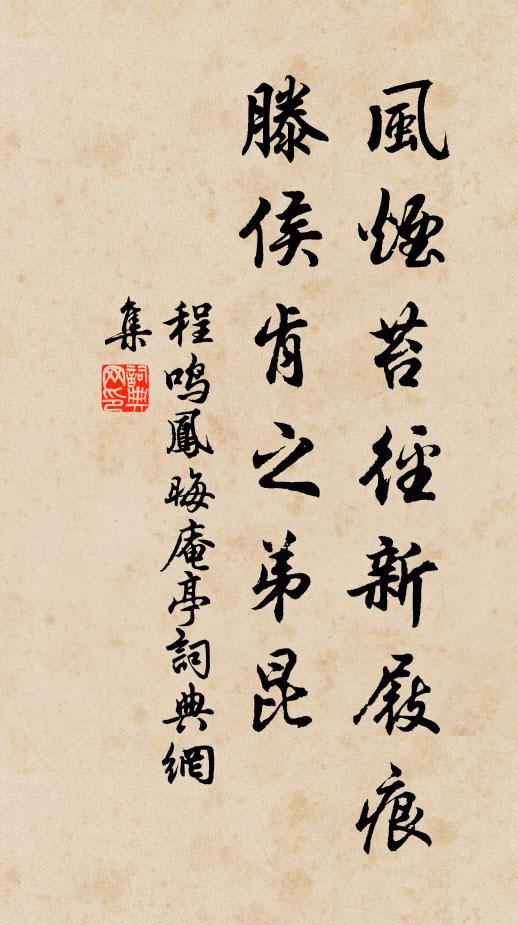 風煙苔徑新屐痕
滕侯肯之弟昆
程鳴鳳晦庵亭詞典網
集
詞典網印